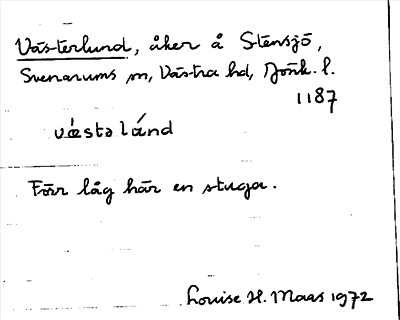 Västerlund, åker å Stensjö,
Svenarums sn, Västra hd, Jönk. l.
1187
væ̀stəlánd
Förr låg här en stuga.
Louise H. Maas 1972